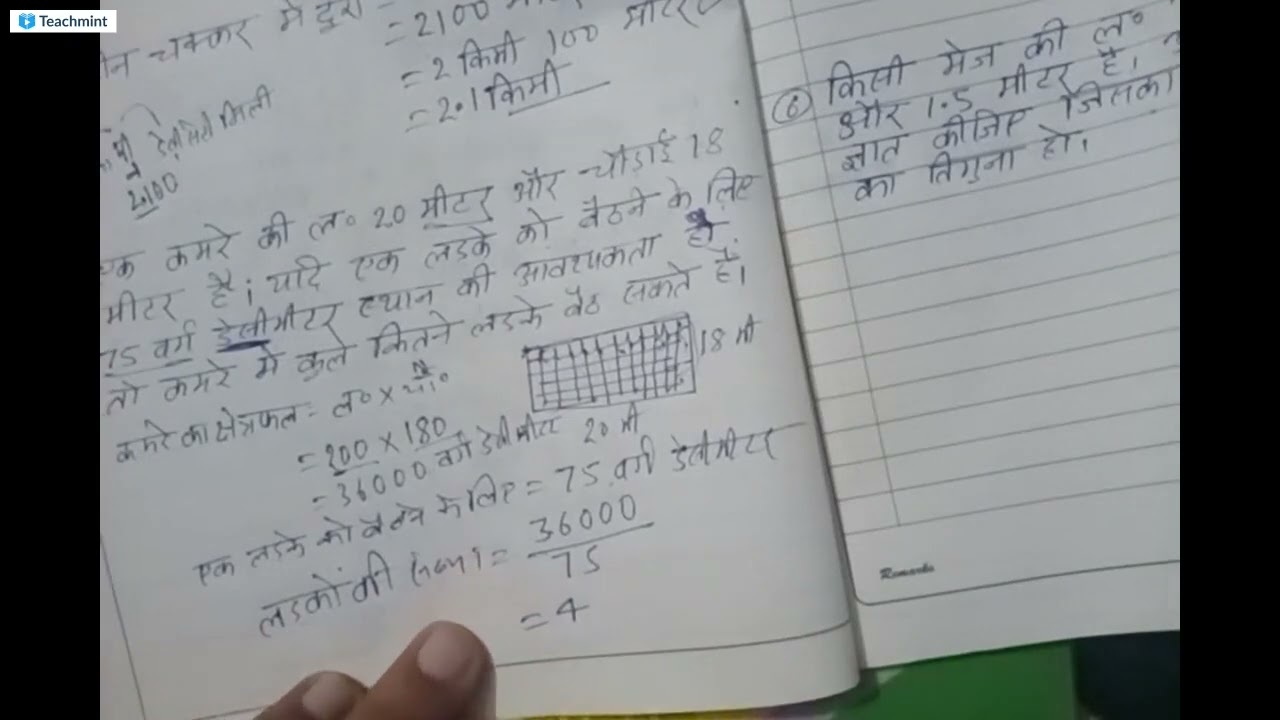 Teachmint
चक्कर मे दूरी
= 2100
= 2 किमी 100 मीटर
= 2.1 किमी
2100
एक कमरे की ल० 20 मीटर और चौडाई 18
मीटर है। यदि एक लडके को बैठने के लिए
75 वर्ग डेसीमीटर स्थान की आवश्यकता हो
तो कमरे मे कुल कितने लडके बैठ सकते है।
कमरे का क्षेत्रफल = ल० × चौ०
18 मी
20 मी
= 200 × 180
= 36000 वर्ग डेसीमीटर
एक लडके को बैठने के लिए = 75 वर्ग डेसीमीटर
लडकों की = 36000
75
= 4
6 किसी मेज की ल०
और 1.5 मीटर है।
ज्ञात कीजिए जिसका
का तिगुना हो।
Remarks